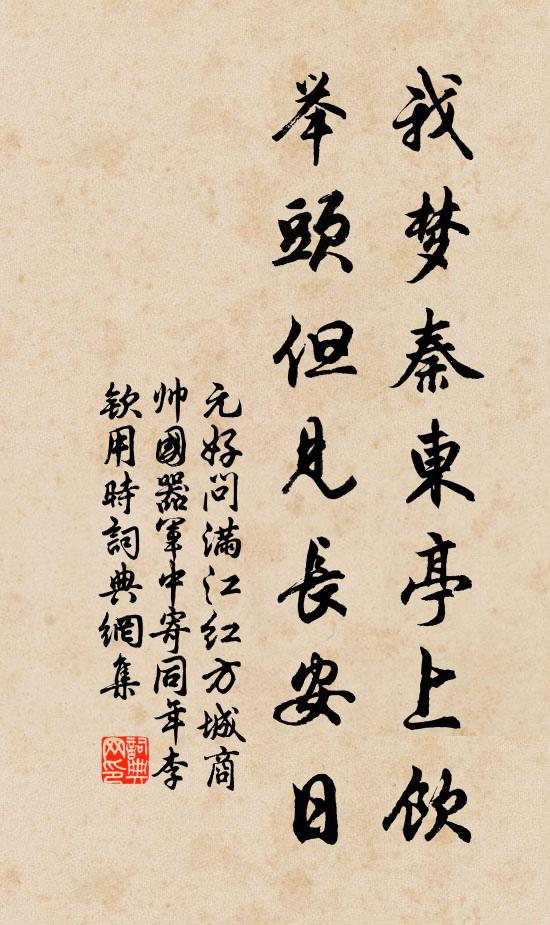 我梦秦東亭上饮
举頭但见長安日
元好问滿江红方城商
帅國器军中寄同年李
钦用時詞典網集
詞典
网印